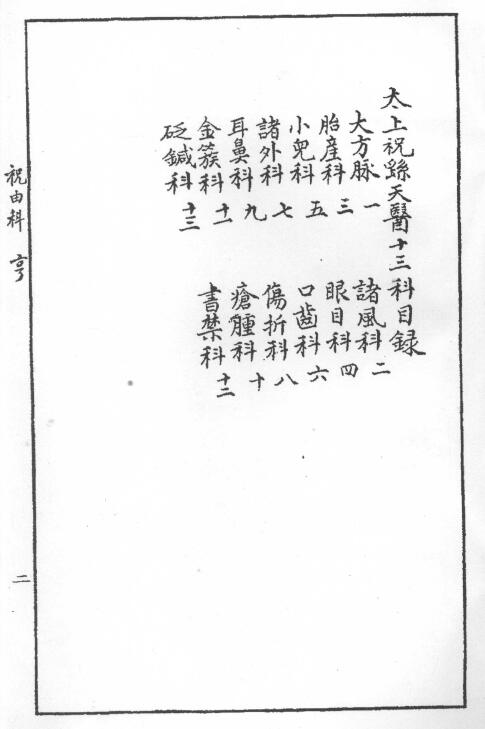 太上祝繇天醫十三科目録
大方脉一 諸風科二
胎産科三 眼目科四
小兒科五 口齒科六
諸外科七 傷折科八
耳鼻科九 瘡腫科十
金簇科十一 書禁科十二
砭鍼科十三
祝由科 亨 二